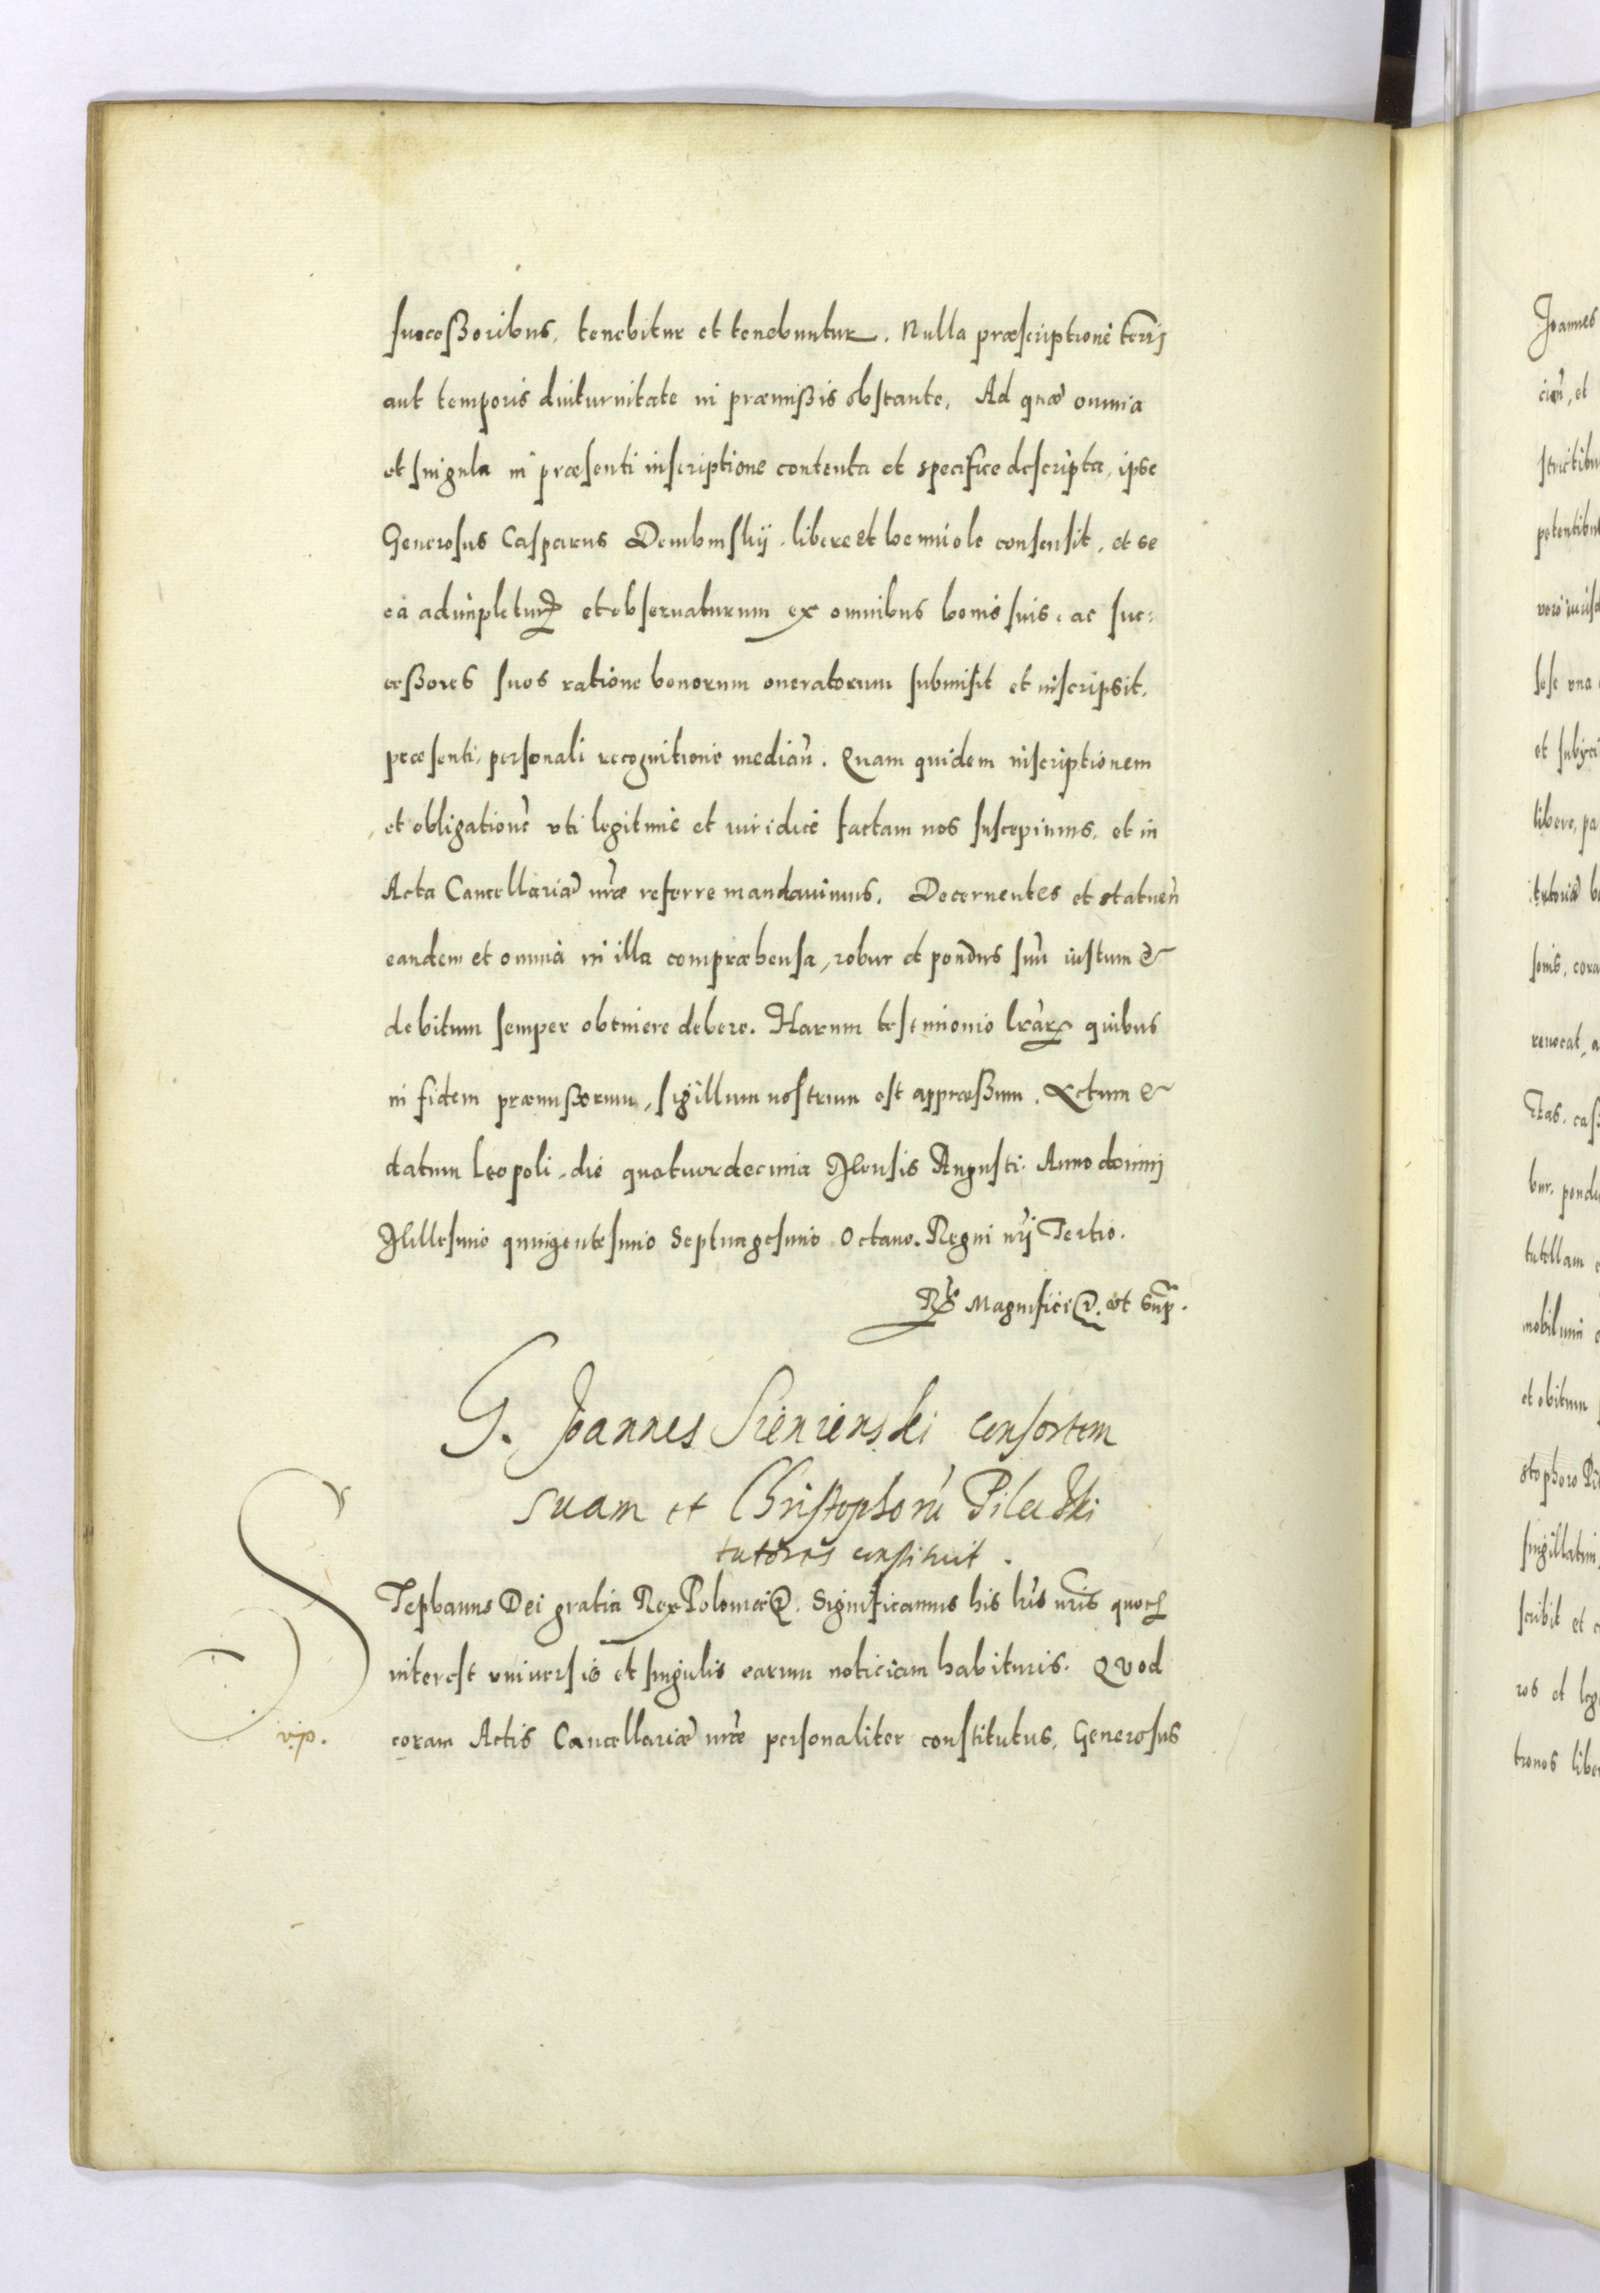 succeßoribus, tenebitur et tenebuntur. Nulla præscriptione terrij
aut temporis diuturnitate in præmißis obstante. Ad quæ omnia
et singula in præsenti inscriptione contenta et specifice descripta, ipse
Generosus Casparus Dembinskij, libere et benniole consensit, et se
ea adimpleturꝝ et obseruaturum ex omnibus bonis suis, ac suc:
ceßores suos ratione bonorum oneratorum submisit et inscripsit.
præsenti, personali recognitione median̄. Quam quidem inscriptionem
et obligationē vti legitime et iuridice factam nos suscepimus, et in
Acta Cancellariæ nr̄æ referre mandauimus. Decernentes et statuen̄
eandem et omnia in illa compræhensa, robur et pondus suū iustum &
debitum semper obtinere debere. Harum testimonio lr̄arꝝ quibus
in fidem præmißorum, sigillum nostrum est appræßum. Actum &
datum Leopoli, die quatuordecima Mensis Augusti. Anno domini
Millesimo quingentesimo Septuagesimo Octauo. Regni nr̄j Tertio.
Magnifici et Sup̄.
G. Joannes Sienienski consortem
suam et Christophorū Pileczki
tutores constituit.
Stephanus Dei gratia Rex Poloniæ. Significamus his lr̄is nr̄is quorꝝ
interest vniuersis et singulis earum noticiam habituris. Quod
vip. coram Actis Cancellariæ nr̄æ personaliter constitutus, Generosus
Joannes
ciū, et
petentibus
vero
sese vna
et
libere, pa
sonis, cora
reuocat, a
bur, pondu
tutellam
et obitum
stophoro
singillatim
scribit et
ros et leg
tronos libe